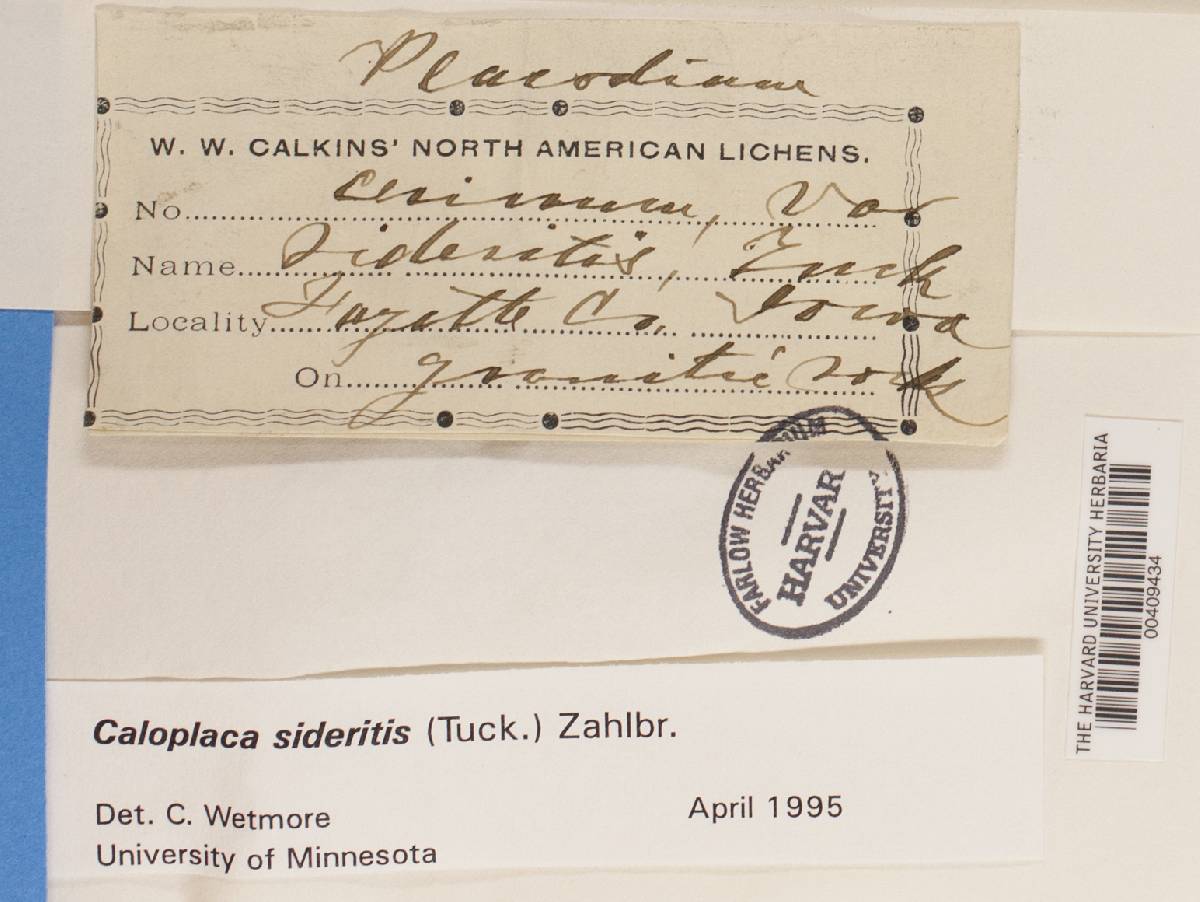 Placodium
W. W. CALKINS' NORTH AMERICAN LICHENS.
No. cerinum, Var
Name Sideritis, Tuck
Locality Fayette Co. Iowa
On granitic rocks
FARLOW HERBARIUM
HARVARD
UNIVERSITY
THE HARVARD UNIVERSITY HERBARIA
00409434
Caloplaca sideritis (Tuck.) Zahlbr.
Det. C. Wetmore April 1995
University of Minnesota